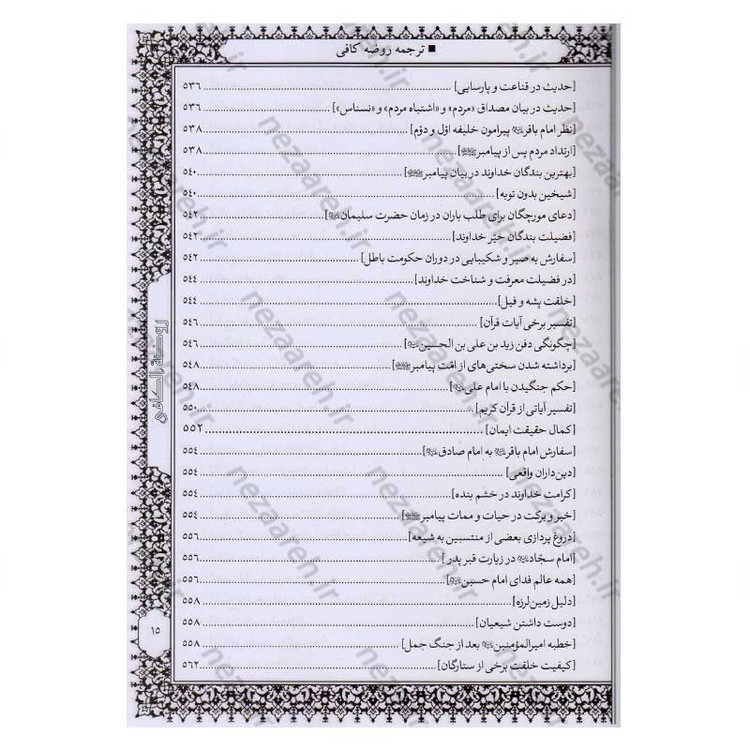 ■ ترجمه روضه کافی
[حدیث در قناعت و پارسایی] ٥٣٦
[حدیث در بیان مصداق «مردم» و «اشتباه مردم» و «نسناس»] ٥٣٦
[نظر امام باقر؏ پیرامون خلیفه اوّل و دوّم] ٥٣٨
[ارتداد مردم پس از پیامبرﷺ] ٥٣٨
[بهترین بندگان خداوند در بیان پیامبرﷺ] ٥٤٠
[شیخین بدون توبه] ٥٤٠
[دعای مورچگان برای طلب باران در زمان حضرت سلیمان؏] ٥٤٢
[فضیلت بندگان خیّر خداوند] ٥٤٢
[سفارش به صبر و شکیبایی در دوران حکومت باطل] ٥٤٢
[در فضیلت معرفت و شناخت خداوند] ٥٤٤
[خلقت پشه و فیل] ٥٤٤
[تفسیر برخی آیات قرآن] ٥٤٦
[چگونگی دفن زید بن علی بن الحسین؏] ٥٤٦
[برداشته شدن سختی‌های از امّت پیامبرﷺ] ٥٤٨
[حکم جنگیدن با امام علی؏] ٥٤٨
[تفسیر آیاتی از قرآن کریم] ٥٥٠
[کمال حقیقت ایمان] ٥٥٢
[سفارش امام باقر؏ به امام صادق؏] ٥٥٤
[دین‌داران واقعی] ٥٥٤
[کرامت خداوند در خشم بنده] ٥٥٤
[خیر و برکت در حیات و ممات پیامبرﷺ] ٥٥٤
[دروغ پردازی بعضی از منتسبین به شیعه] ٥٥٦
[امام سجّاد؏ در زیارت قبر پدر] ٥٥٦
[همه عالم فدای امام حسین؏] ٥٥٦
[دلیل زمین‌لرزه] ٥٥٨
[دوست داشتن شیعیان] ٥٥٨
[خطبه امیرالمؤمنین؏ بعد از جنگ جمل] ٥٥٨
[کیفیت خلقت برخی از ستارگان] ٥٦٢
روضة الکافی
١٥
nezaareh.ir